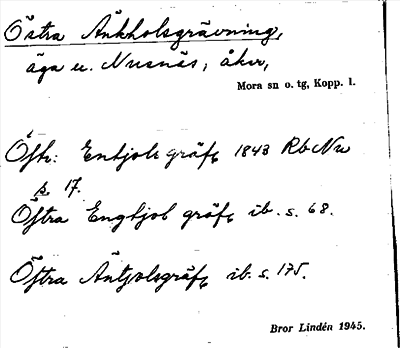 Östra Änkholsgrävning,
äga u. Nusnäs, åker,
Mora sn o. tg, Kopp. l.
Öftr: Enhjols gräfg 1843 Rb Nu
s. 17.
Öftra Enghjol gräfg ib. s. 68.
Öftra Äntjolsgräfg ib. s. 175.
Bror Lindén 1945.